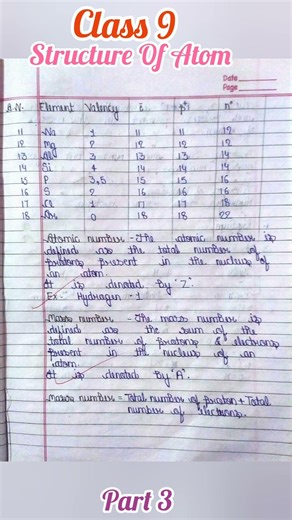 Class 9
Structure Of Atom
Date
Page
A.N. Element Valency e⁻ p⁺ n⁰
11 Na 1 11 11 12
12 Mg 2 12 12 12
13 Al 3 13 13 14
14 Si 4 14 14 14
15 P 3,5 15 15 16
16 S 2 16 16 16
17 Cl 1 17 17 18
18 Ar 0 18 18 22
Atomic number - The atomic number is
defined as the total number of
protons present in the nucleus of
an atom.
It is denoted by "Z".
Ex - Hydrogen - 1
Mass number - The mass number is
defined as the sum of the
total number of protons & electrons
present in the nucleus of an
atom.
It is denoted by "A".
Mass number = Total number of proton + Total
number of electrons.
Part 3